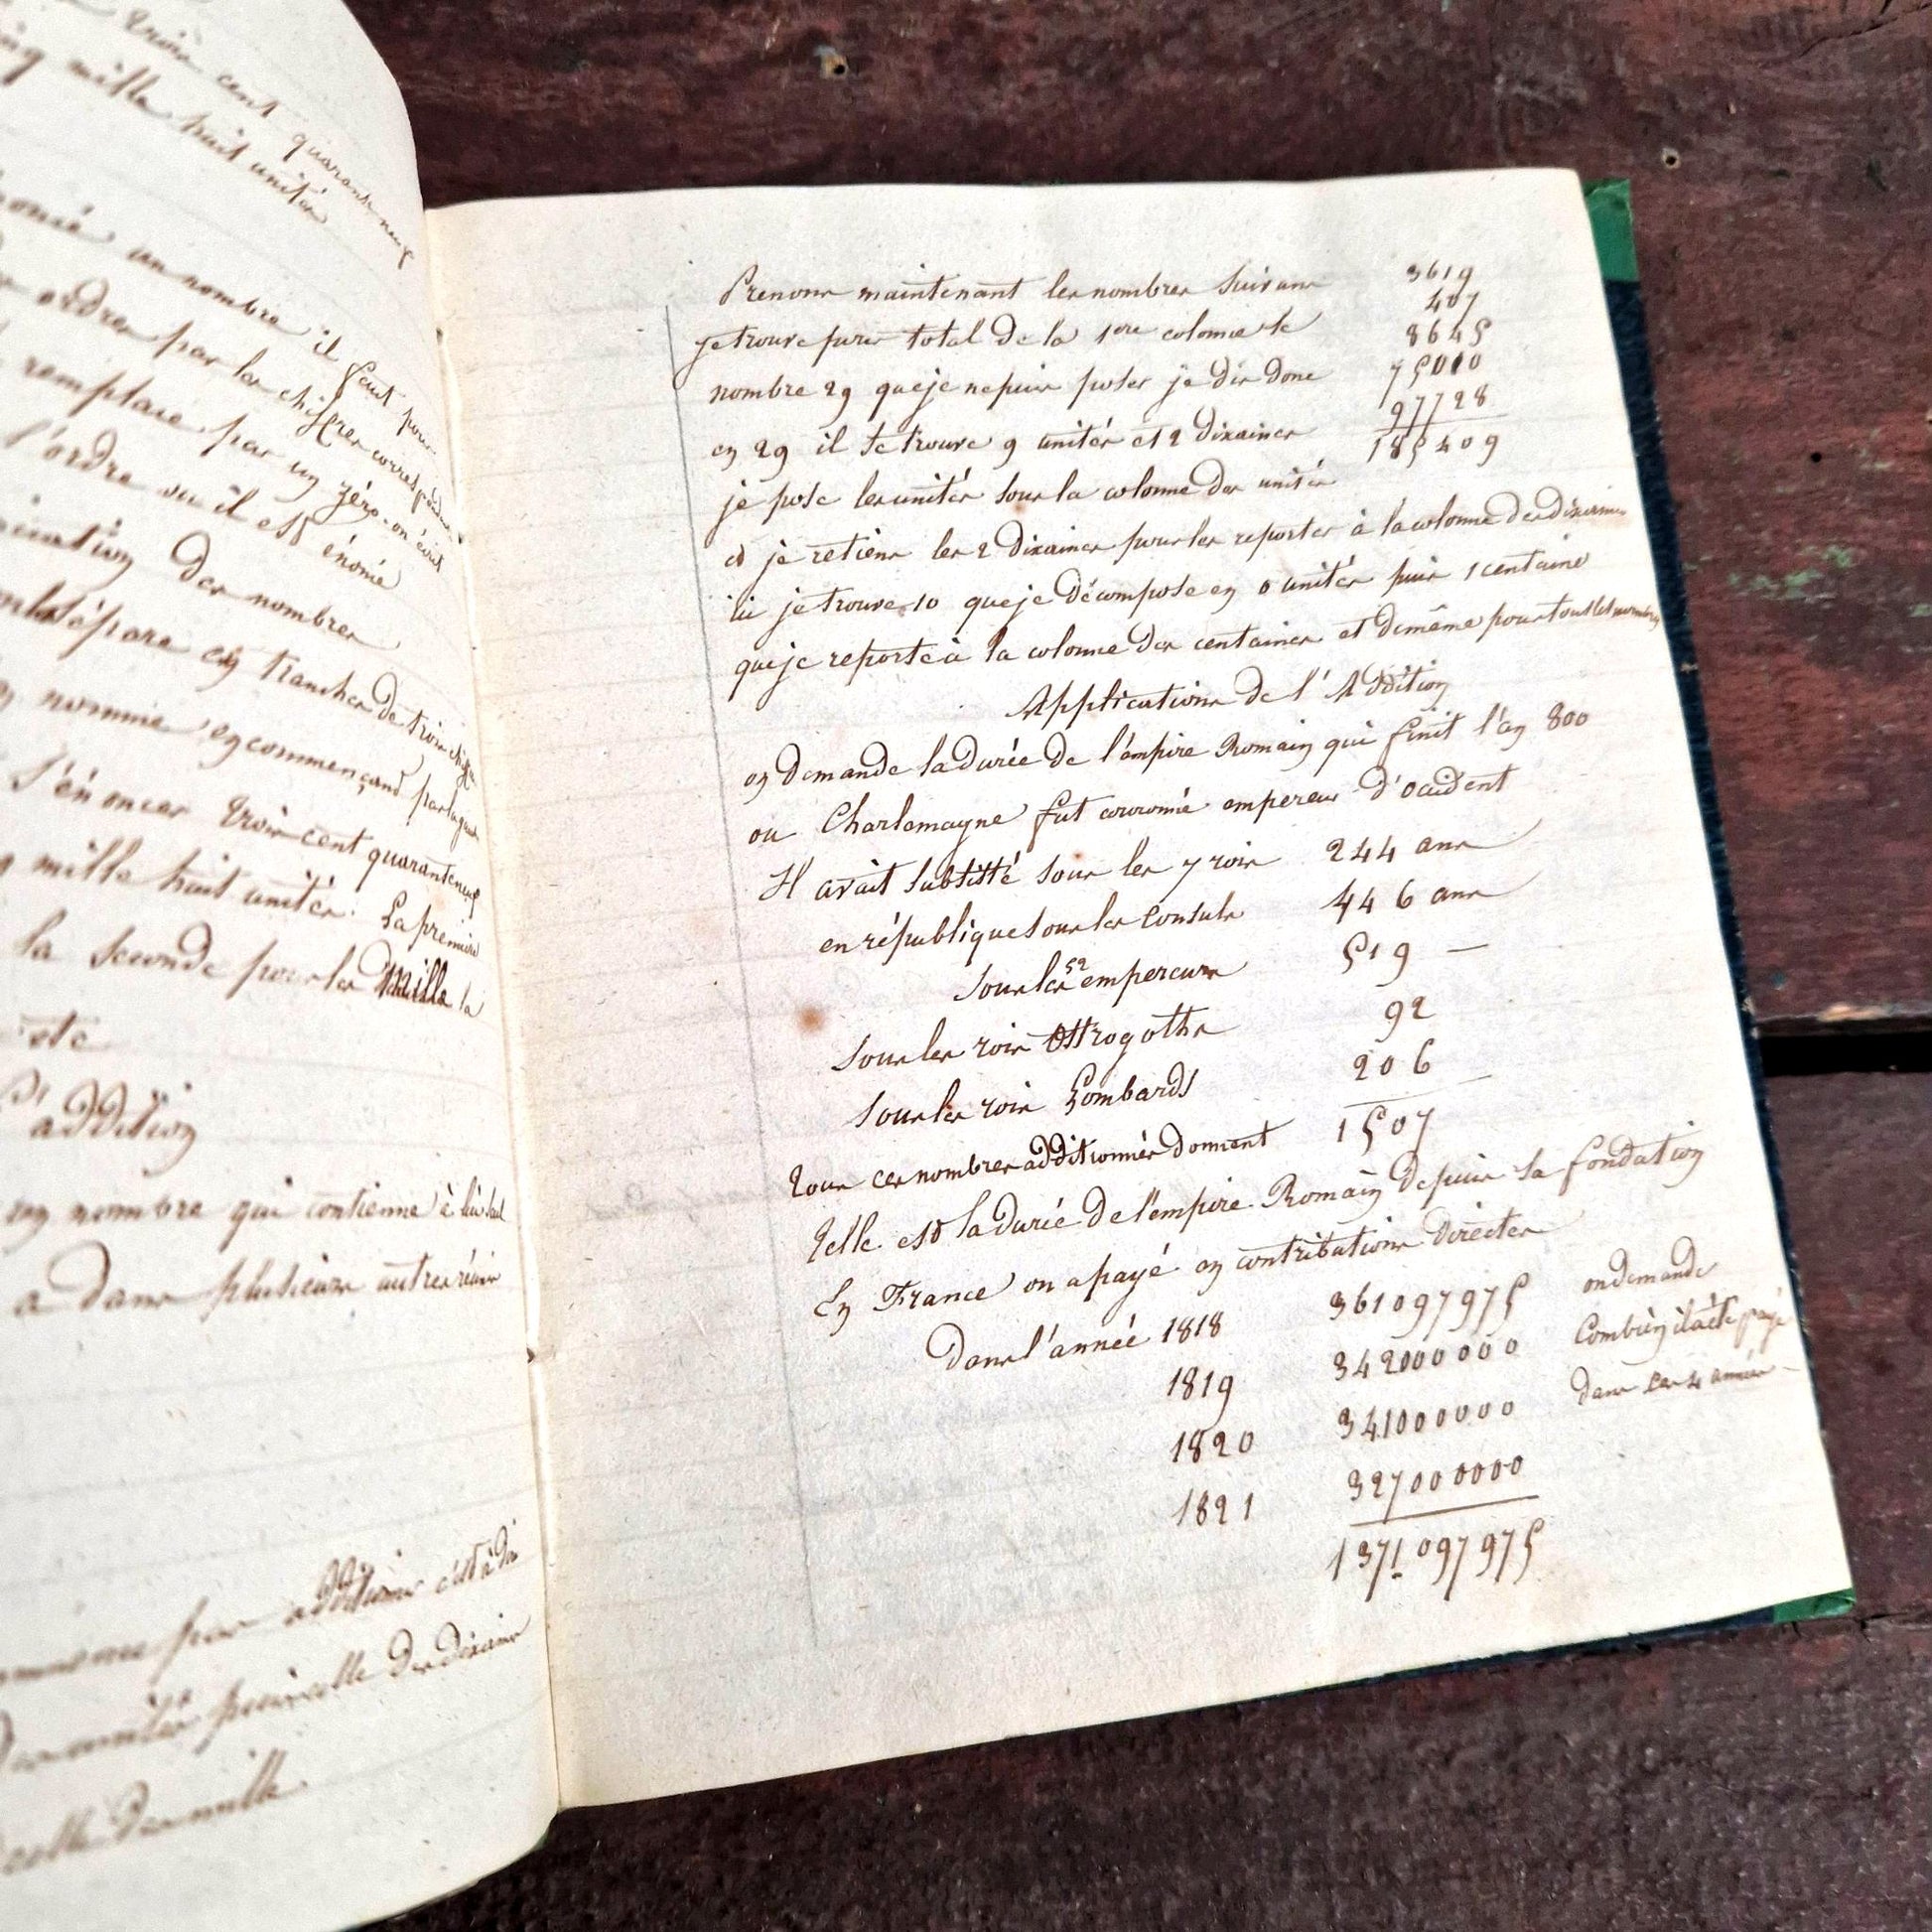 trois cent quarante neuf
cinq mille huit unités
énoncé un nombre il faut pour
ordres par les chiffres correspondans
remplace par un zéro on écrit
l'ordre ou il est énoncé
des nombres
sépare en tranches de trois chiffres
nomme en commençant par la gauche
s'énoncer trois cent quarante neuf
mille huit unités. La première
la seconde pour les mille la
etc
L'addition
un nombre qui contienne à lui seul
a dans plusieurs autres réunis
par additionner c'est à dire
des unités puis celle des dixaines
celle des mille
Prenons maintenant les nombres suivans 3619
je trouve pour total de la 1ere colonne le 407
nombre 29 que je ne puis poser je dis donc 8645
en 29 il se trouve 9 unités et 2 dixaines 75010
je pose les unités sous la colonne des unités 97728
185409
et je retiens les 2 dixaines pour les reporter à la colonne des dixaines
ici je trouve 10 que je décompose en 0 unités puis 1 centaine
que je reporte à la colonne des centaines et de même pour tous les nombres
Applications de l'Addition
on demande la durée de l'empire Romain qui finit l'an 800
ou Charlemagne fut couronné empereur d'occident
Il avait subsisté sous les 7 rois 244 ans
en république sous les Consuls 446 ans
sous les 52 empereurs 519 —
sous les rois Ostrogoths 92
sous les rois Lombards 206
Tous ces nombres additionnés donnent 1507
Telle est la durée de l'empire Romain depuis sa fondation
En France on a payé en contributions directes
Dans l'année 1818 361097975 on demande
1819 342000000 Combien il a été payé
1820 341000000 dans ces 4 années —
1821 327000000
1371097975